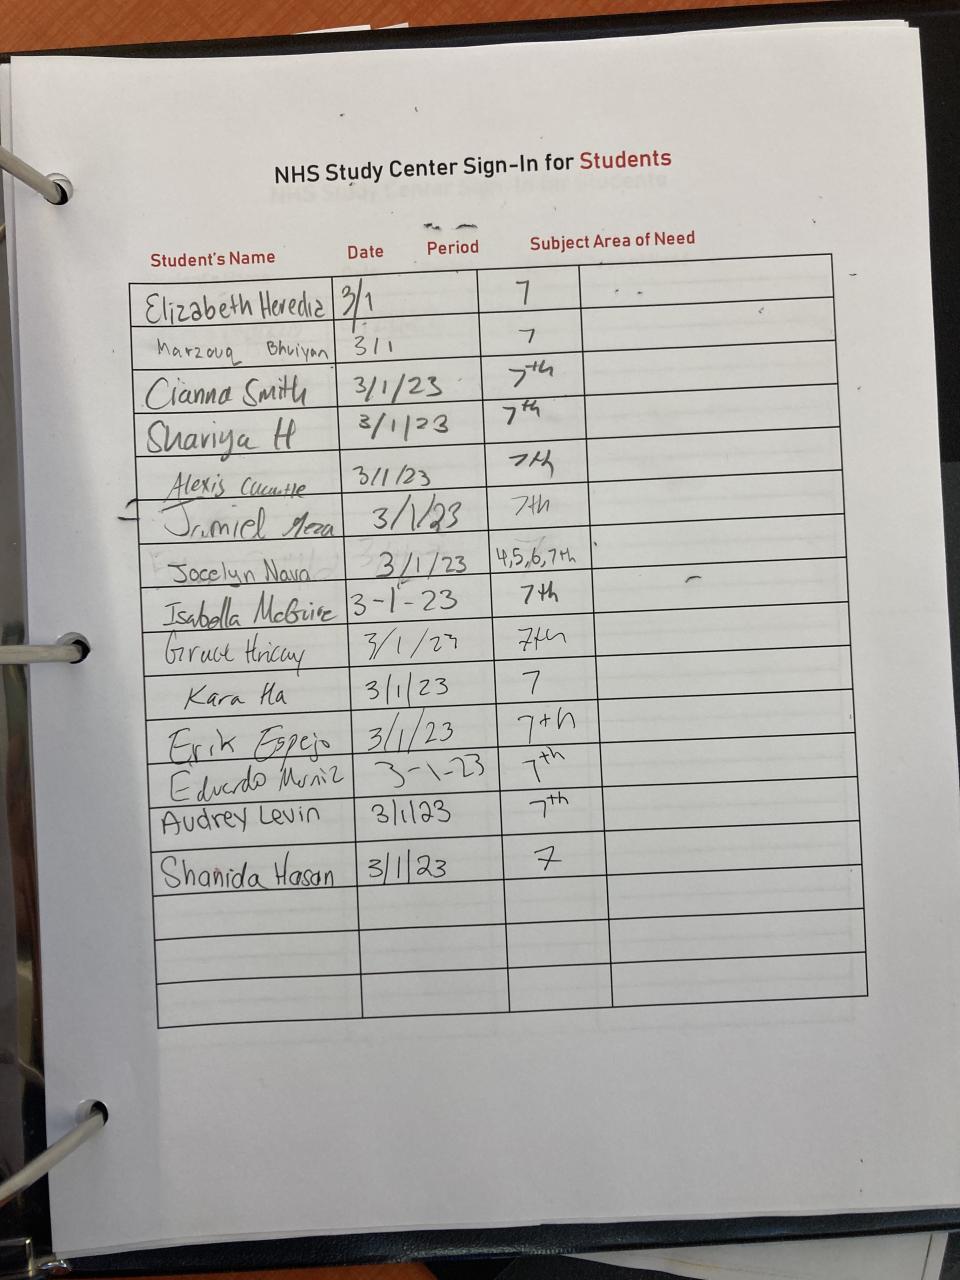 NHS Study Center Sign-In for Students
Student's Name Date Period Subject Area of Need
Elizabeth Heredia 3/1 7
Marzouq Bhuiyan 3/1 7
Cianna Smith 3/1/23 7th
Shariya H 3/1/23 7th
Alexis 3/1/23 7th
Meza 3/1/23 7th
Jocelyn Nava 3/1/23 4,5,6,7th
Isabella McGuire 3-1-23 7th
3/1/23 7th
Kara Ha 3/1/23 7
Erik Espejo 3/1/23 7th
Eduardo Muniz 3-1-23 7th
Audrey Levin 3/1/23 7th
Shanida Hasan 3/1/23 7